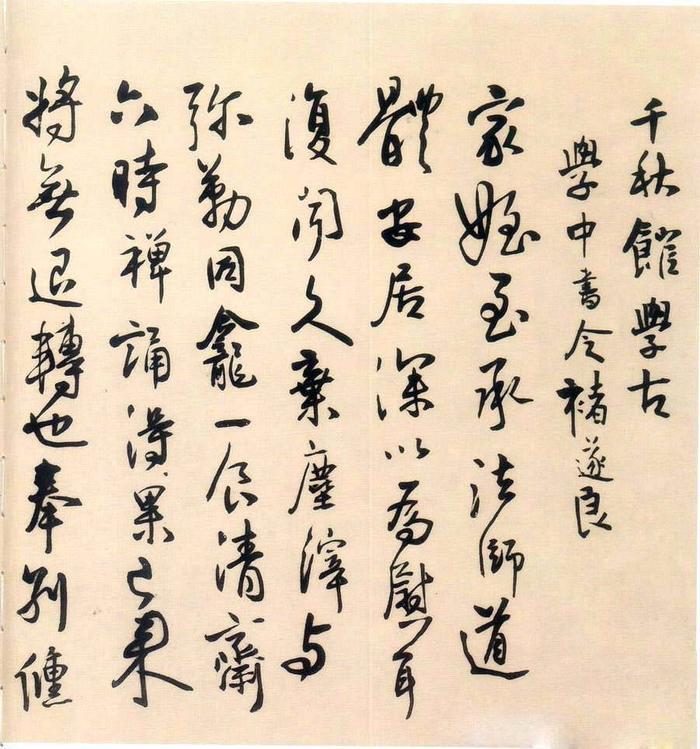 千秋館學古
學中書令褚遂良
家姪至承法師道
體安居深以為慰耳
復聞久棄塵滓与
弥勒同龕一食清齋
六時禪誦得果已來
將無退轉也奉別